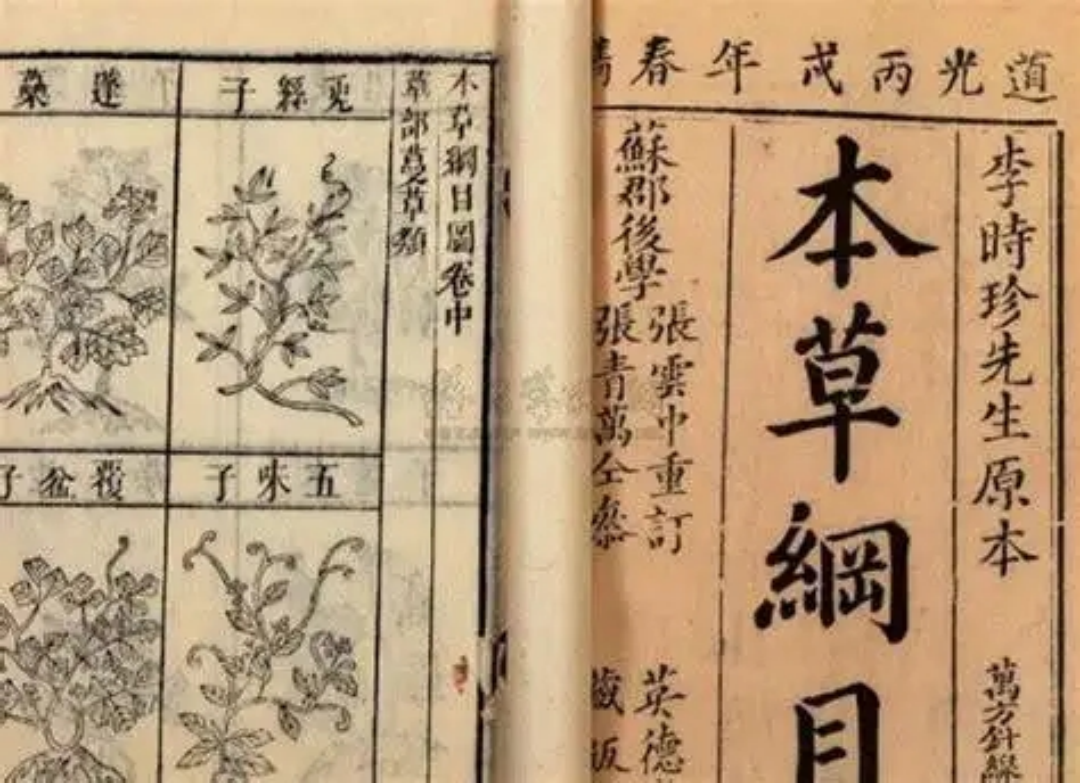 道光丙戌年春
李時珍先生原本
萬方針
本草綱目
蘇郡後學
張雲中重訂
張青萬仝參
英德
藏版
本草綱目圖卷中
草部蔓草類
菟絲子
蓬蘽
五味子
覆盆子